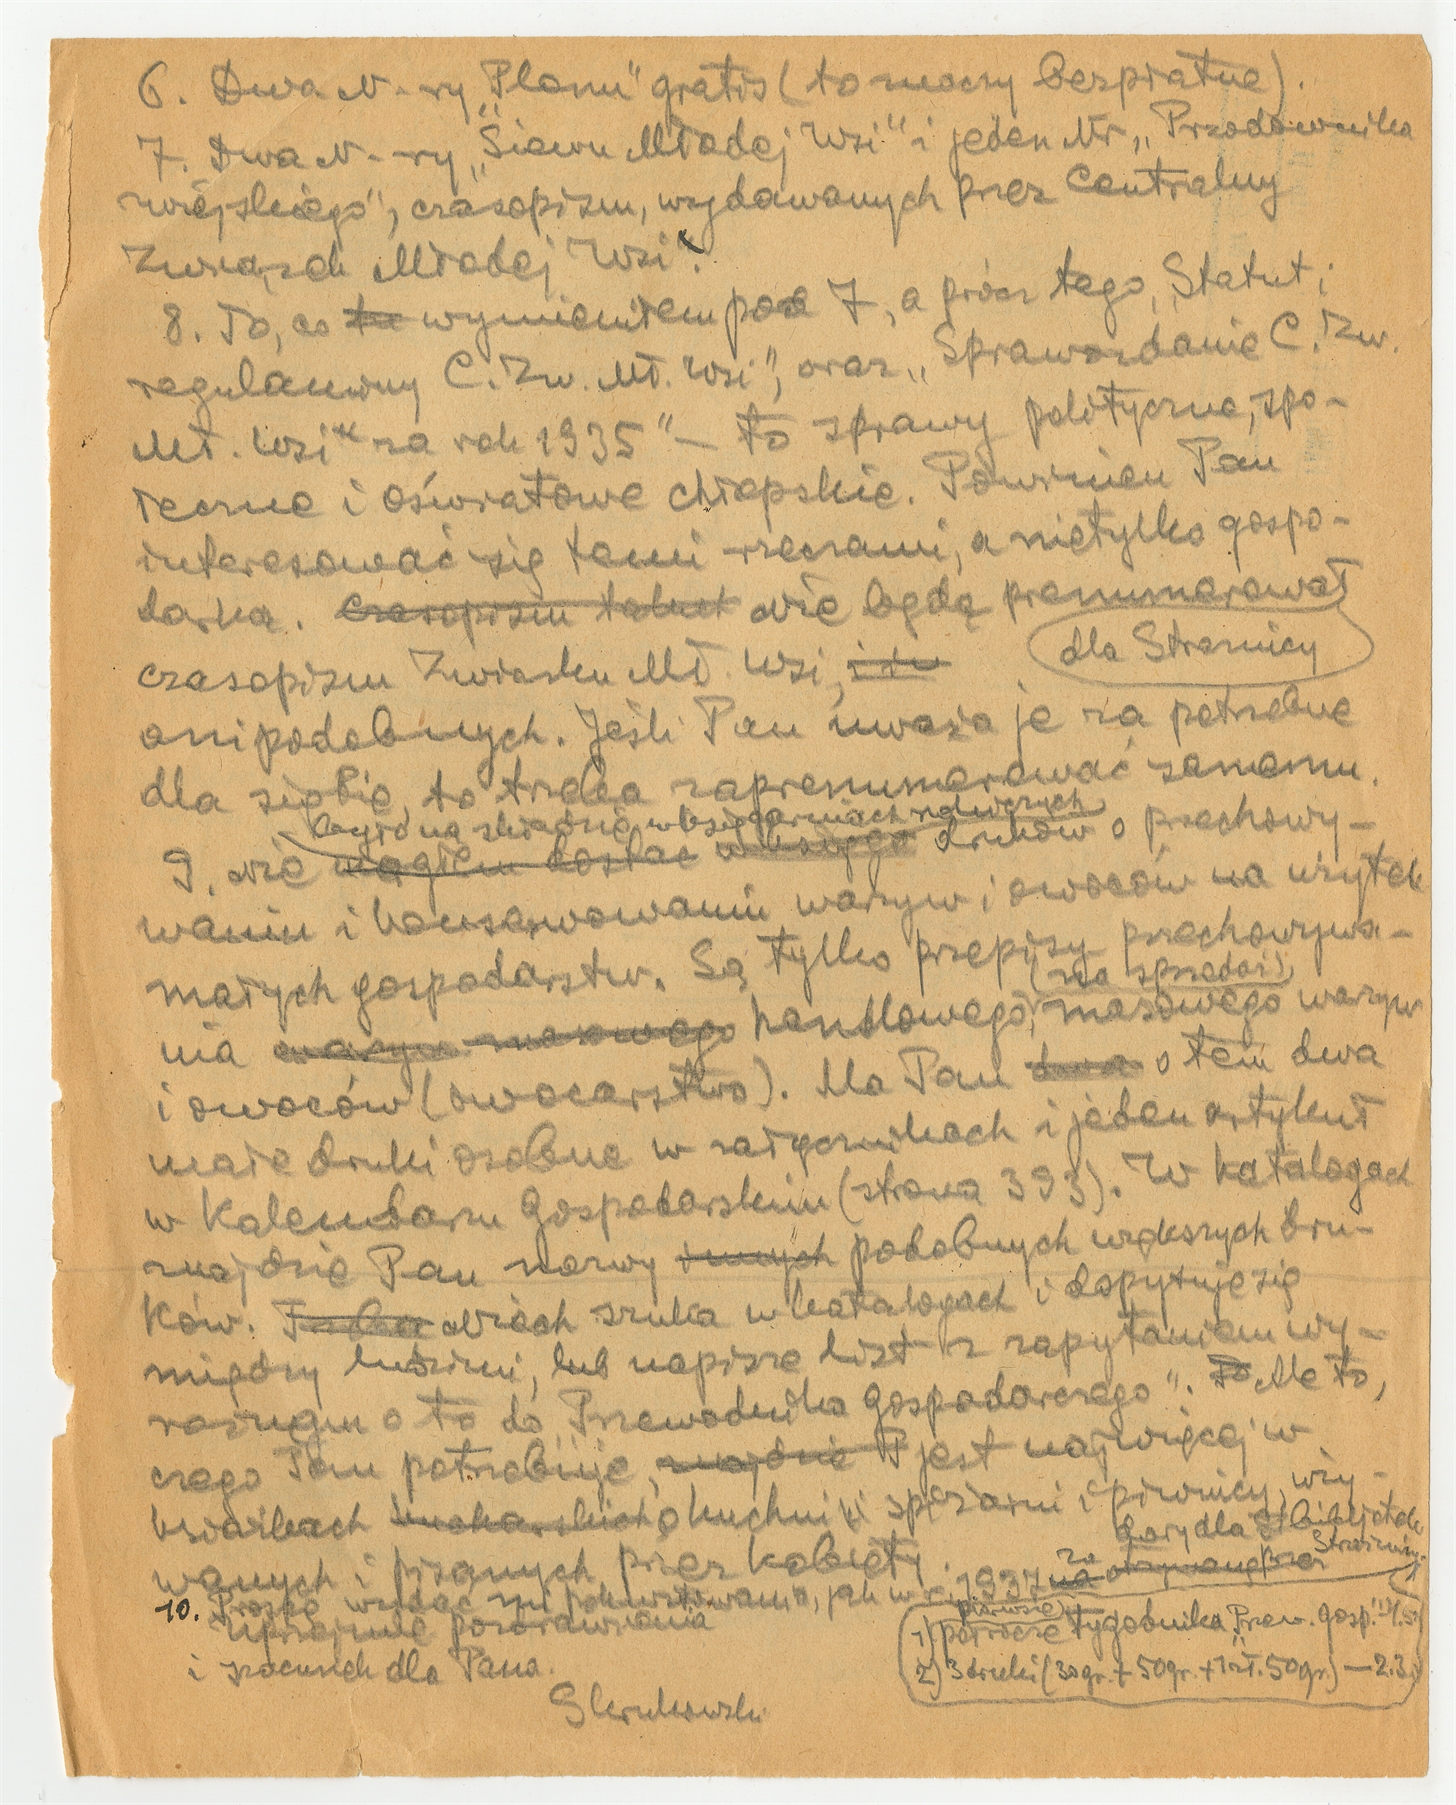 6. Dwa N-ry „Plonu” gratis (to znaczy bezpłatne).
7. Dwa N-ry „Siewu Młodej Wsi” i jeden Nr „Przodownika
wiejskiego”, czasopism, wydawanych przez Centralny
Związek Młodej Wsi”.
8. To, co tu wymieniłem pod 7, a prócz tego, „Statut i
regulaminy C. Zw. Mł. Wsi”, oraz „Sprawozdanie C. Zw.
Mł. Wsi” za rok 1935” — to sprawy polityczne, spo-
łeczne i oświatowe chłopskie. Powinien Pan
interesować się temi rzeczami, a nietylko gospo-
darką. Czasopism Nie będę prenumerował
dla Strażnicy
czasopism Związku Mł. Wsi,
ani podobnych. Jeśli Pan uważa je za potrzebne
dla siebie, to trzeba zaprenumerować samemu.
było na składzie w księgarniach rolniczych
9. Nie mogłem dostać druków o przechowy-
waniu i konserwowaniu warzyw i owoców na użytek
małych gospodarstw. Są tylko przepisy przechowywa-
(na sprzedaż)
nia warzyw masowego handlowego, masowego warzyw
i owoców (owocarstwo). Ma Pan dwa o tem dwa
małe druki osobne w załącznikach i jeden artykuł
w Kalendarzu Gospodarskim (strona 393). W katalogach
znajdzie Pan nazwy innych podobnych większych dru-
ków. Trzeba Niech szuka w katalogach i dopytuje się
między ludźmi, lub napisze list z zapytaniem wy-
raźnym o to do „Przewodnika Gospodarczego”. To Ale to,
czego Pan potrzebuje, znajdzie P jest najwięcej w
książkach kucharskich o kuchni i spiżarni i piwnicy, uży-
wanych i pisanych przez kobiety.
10. Proszę wydać mi pokwitowanie, jak w r. 1937 za
dary dla bibljotek
Strażnicy
Uprzejme pozdrowienia
i szacunek dla Pana.
Skrukowski
pierwsze
1) półrocze tygodnika „Przew. Gosp.”
2) 3 druki (30 gr. + 50 gr. + 1 zł. 50 gr.) — 2.30